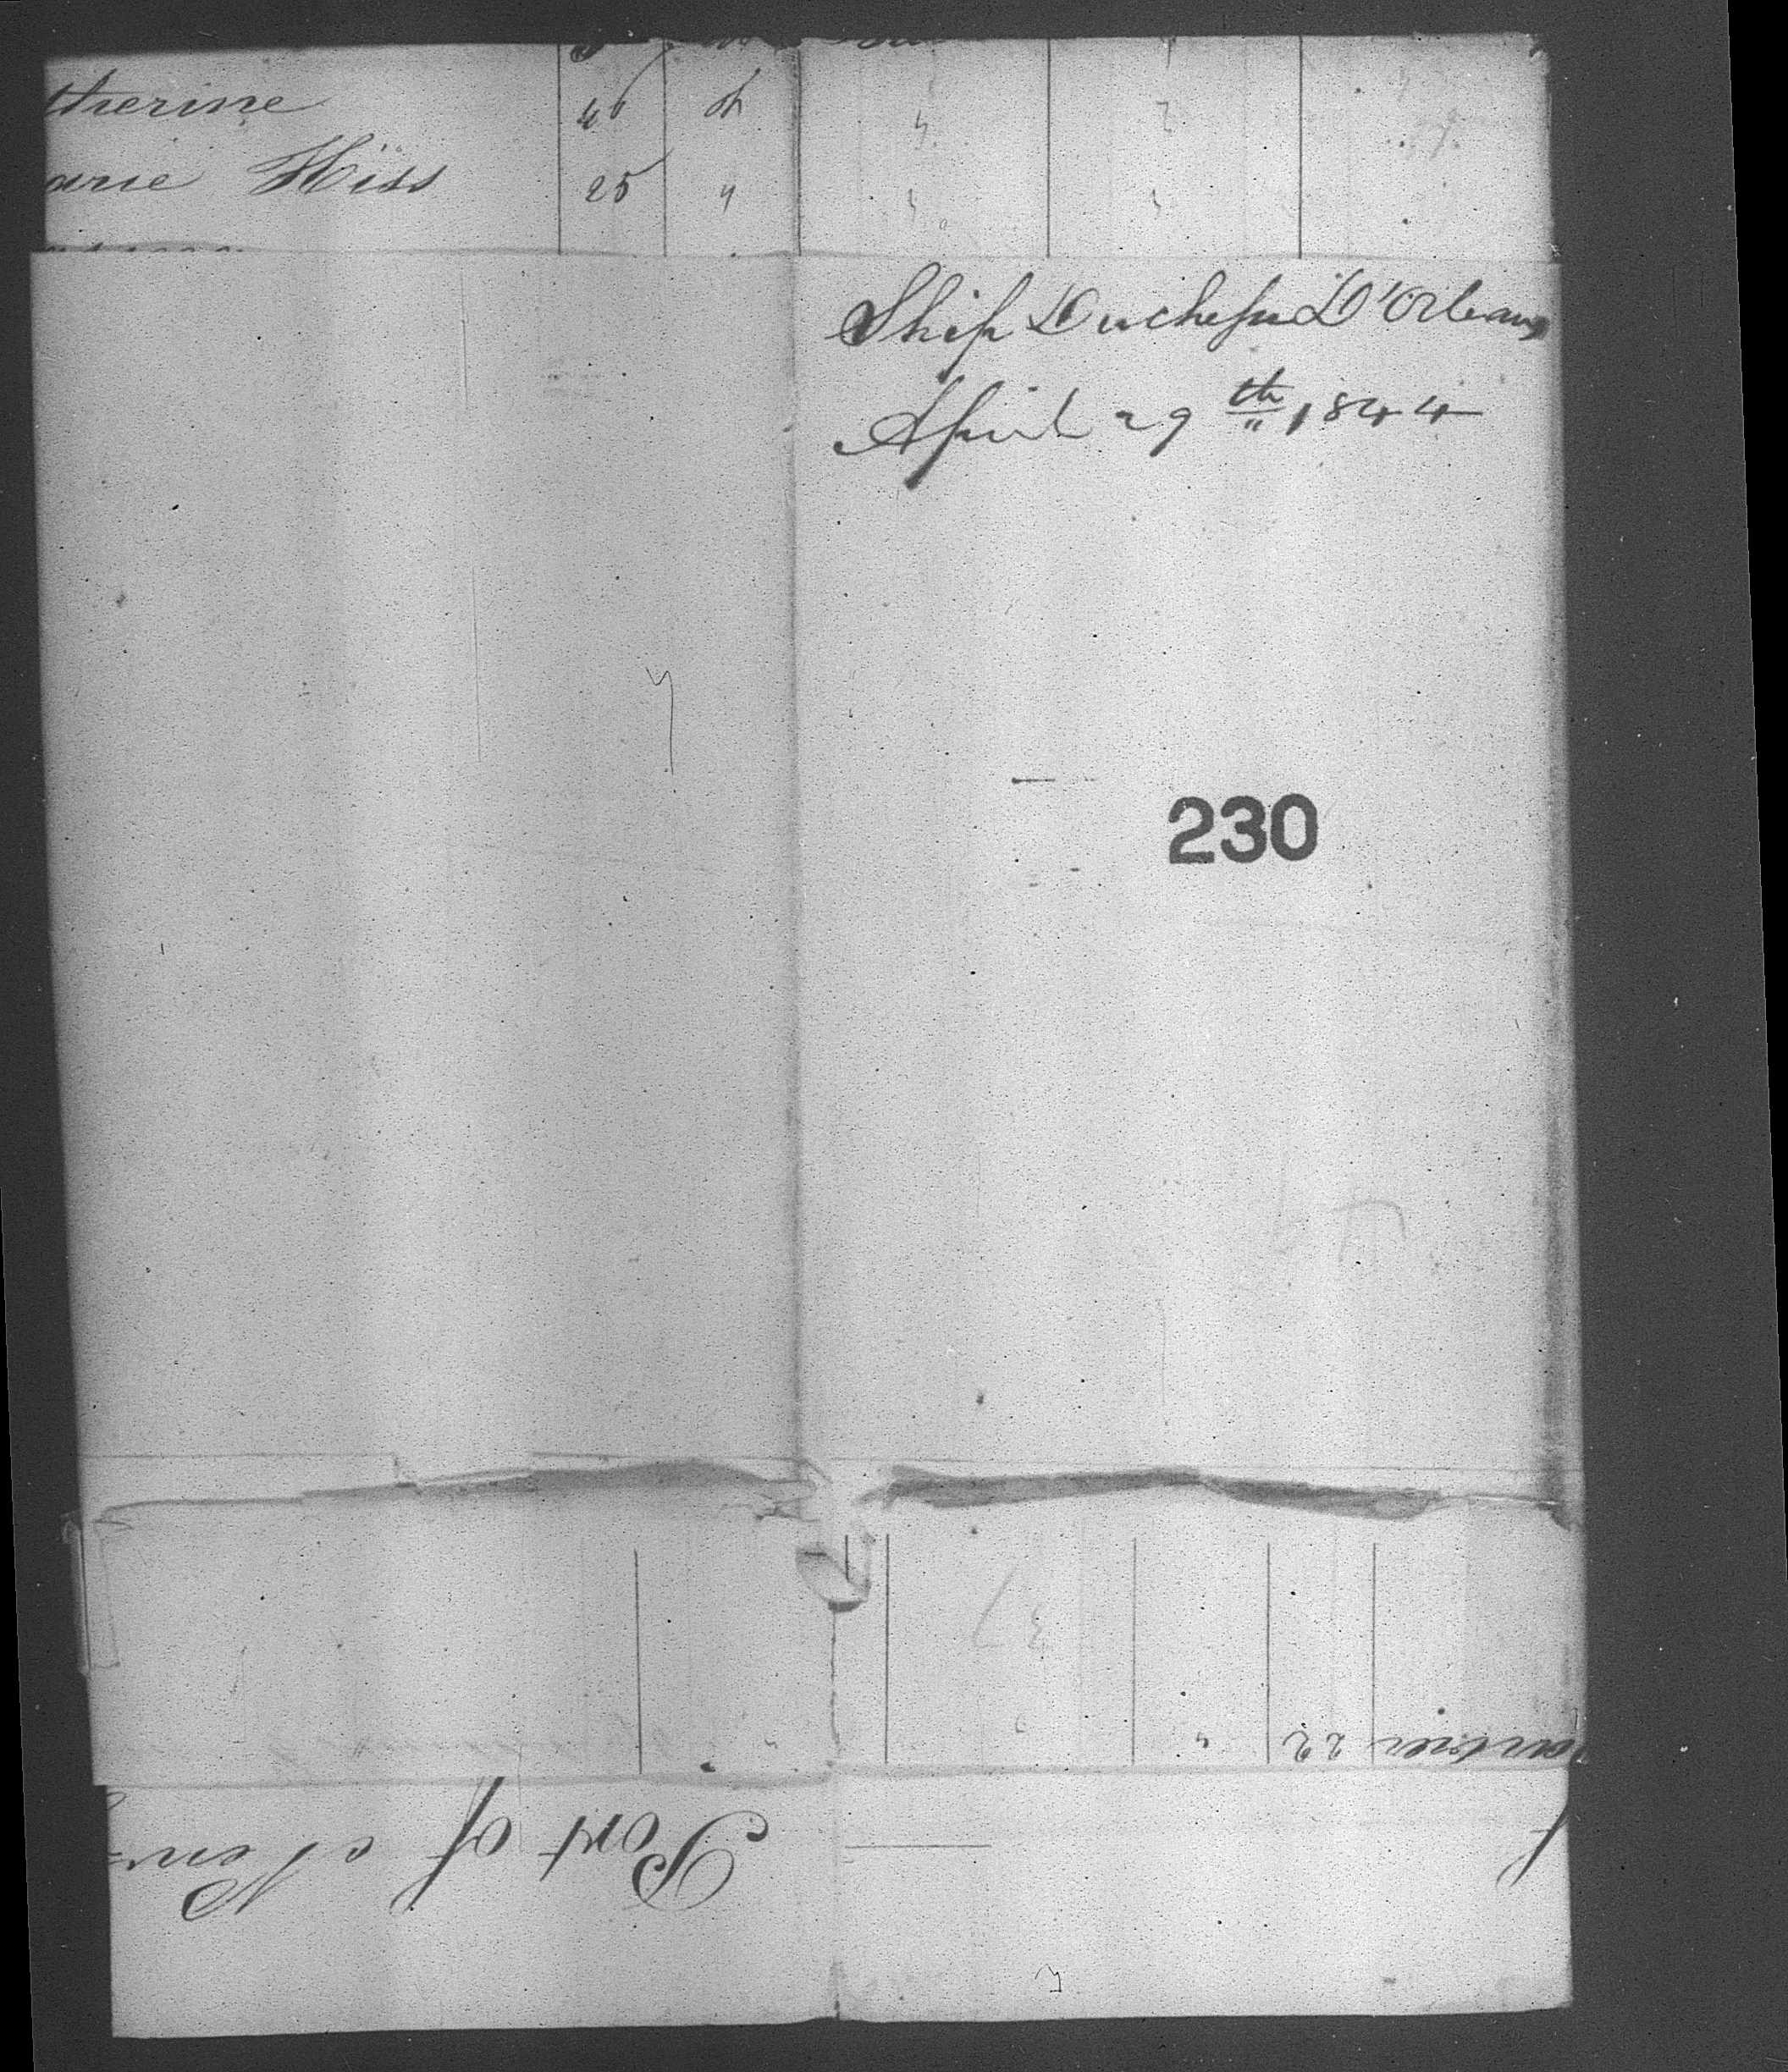 therine 40
arie Hiss 25 "
Ship Duchesse D'Orleans
April 29th 1844
230
37
22
Port of New